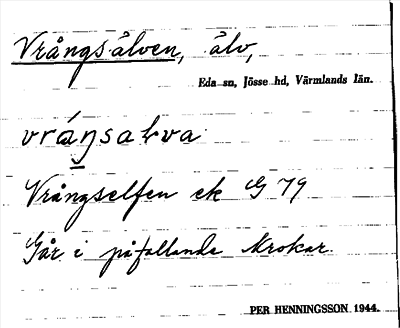 Vrångsälven, älv,
Eda sn, Jösse hd, Värmlands län.
vráŋsaḷva
Vrångselfen ek G 79
Går i påfallande krokar.
PER HENNINGSSON 1944.